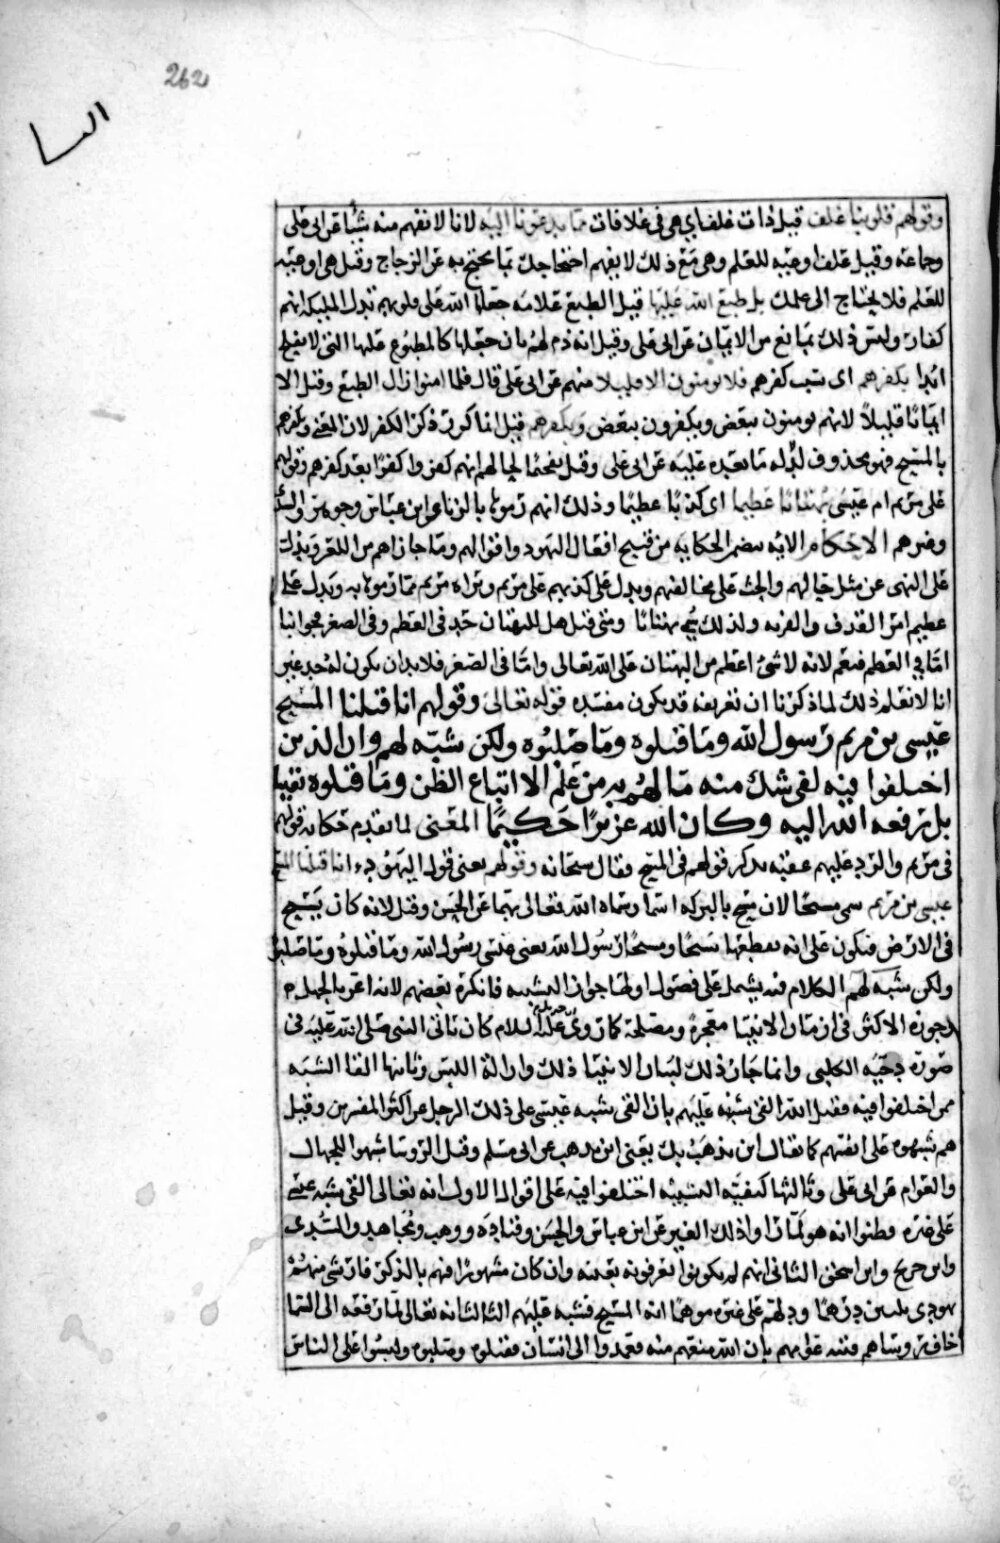 262
النسا
وقولهم قلوبنا غلف قيل ذات غلف اي هي في غلافات مما يدعونا اليه لانا لا نفهم منه شيئا عن ابي على
وجماعة وقيل غلف اوعيه للعلم وهي مع ذلك لا يفهم احتجاجك بما يحتج به عن الزجاج وقيل هي اوعيه
للعلم فلا يحتاج الى علمك بل طبع الله عليها قيل الطبع علامه جعلها الله على قلوبهم تدل الملئكه انهم
كفار وليس ذلك بمانع من الايمان عن ابي على وقيل انه ذم لهم بان جعلها كالمطبوع عليها التي لا تفلح
ابدا بكفرهم اى بسبب كفرهم فلا يومنون الا قليلا منهم عن ابي على قال فلما امنوا زال الطبع وقيل الا
ايمانا قليلاً لانهم يومنون ببعض ويكفرون ببعض وبكفرهم قيل انما كرر ذكر الكفر لان المعني وكفرهم
بالمسيح فهو محذوف لدلاله ما بعده عليه عن ابي على وقيل تفخيما لحالهم انهم كفروا كفرا بعد كفرهم وقولهم
على مريم ام عيسى بهتانا عظيما اى كذبا عظيما وذلك انهم رموها بالزنا عن ابن عباس وجويبر والسدى
وغيرهم الاحكام الايه تتضمن الحكايه من قبيح افعال اليهود واقوالهم وما جازاهم من اللعن ويدل
على النهى عن مثل حالهم والحث على مخالفتهم ويدل على كذبهم على مريم وبراه مريم مما رموها به ويدل على
عظيم امر القذف والفريه ولذلك سمي بهتانا ومتى قيل هل للبهتان حد في العظم وفي الصغر فجوابنا
اما في العظم فنعم لانه لا شئ اعظم من البهتان على الله تعالى واما في الصغر فلا بد ان يكون له حد غير
انا لا نعلم ذلك لما ذكرنا ان تعريفه قد يكون مفسده قوله تعالى وقولهم انا قتلنا المسيح
عيسى بن مريم رسول الله وما قتلوه وما صلبوه ولكن شبه لهم وان الذين
اختلفوا فيه لفى شك منه ما لهم به من علم الا اتباع الظن وما قتلوه يقينا
بل رفعه الله اليه وكان الله عزيزا حكيما المعنى لما تقدم حكايه قولهم
في مريم والرد عليهم عقبه بذكر قولهم في المسيح فقال سبحانه وقولهم يعنى قول اليهود انا قتلنا المسيح
عيسى بن مريم سمى مسيحا لان مسح بالبركه اسما وسماه الله تعالى بهما عن الحسن وقيل لانه كان يسيح
في الارض فيكون على انه يقطعها سيحا ومسحا رسول الله يعنى عيسى رسول الله وما قتلوه وما صلبوه
ولكن شبه لهم الكلام فيه يشتمل على فصول اولها جواز التشبيه فانكره بعضهم لانه اغرا بالجهل و
جوزه الاكثر في ازمان الانبيا معجزة ومصلحة كما روى ان جبريل عليه السلام كان ياتي النبي صلى الله عليه في
صورة دحيه الكلبى وانما جاز ذلك لبيان الانبيا ذلك وازالة اللبس وثانيها القا الشبه
ممن اختلفوا فيه فقيل الله القى شبهه عليهم بان القى شبه عيسى على ذلك الرجل عن اكثر المفسرين وقيل
هم شبهوه على انفسهم كما يقال اين يذهب بك يعني اين تذهب عن ابي مسلم وقيل الروسا شبهوا للجهال
والعوام عن ابي على وثالثها كيفيه التشبيه اختلفوا فيه على اقوال الاول انه تعالى القى شبه عيسى
على غيره فظنوا انه هو لما راوا ذلك الغير عن ابن عباس والحسن وقتاده ووهب ومجاهد والسدى
وابن جريج وابن اسحق الثانى انهم لم يكونوا يعرفونه بعينه وان كان مشهورا فيهم بالذكر فارتشى منهم
يهودى ثلثين درهما ودلهم على غيره موهما انه المسيح فشبه عليهم الثالث انه تعالى لما رفعه الى السما
خاف روساهم فتنه عوامهم بان الله منعهم منه فعمدوا الى انسان فقتلوه وصلبوه ولبسوا على الناس